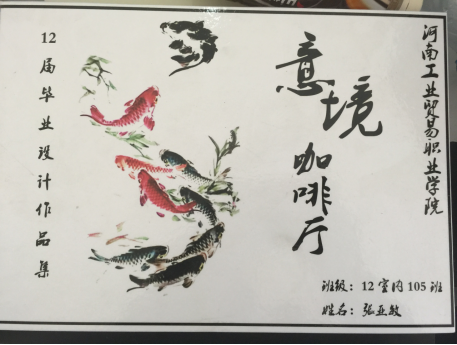 12届毕业设计作品集
意境
咖啡厅
河南工业贸易职业学院
班级：12室内105班
姓名：张亚敏